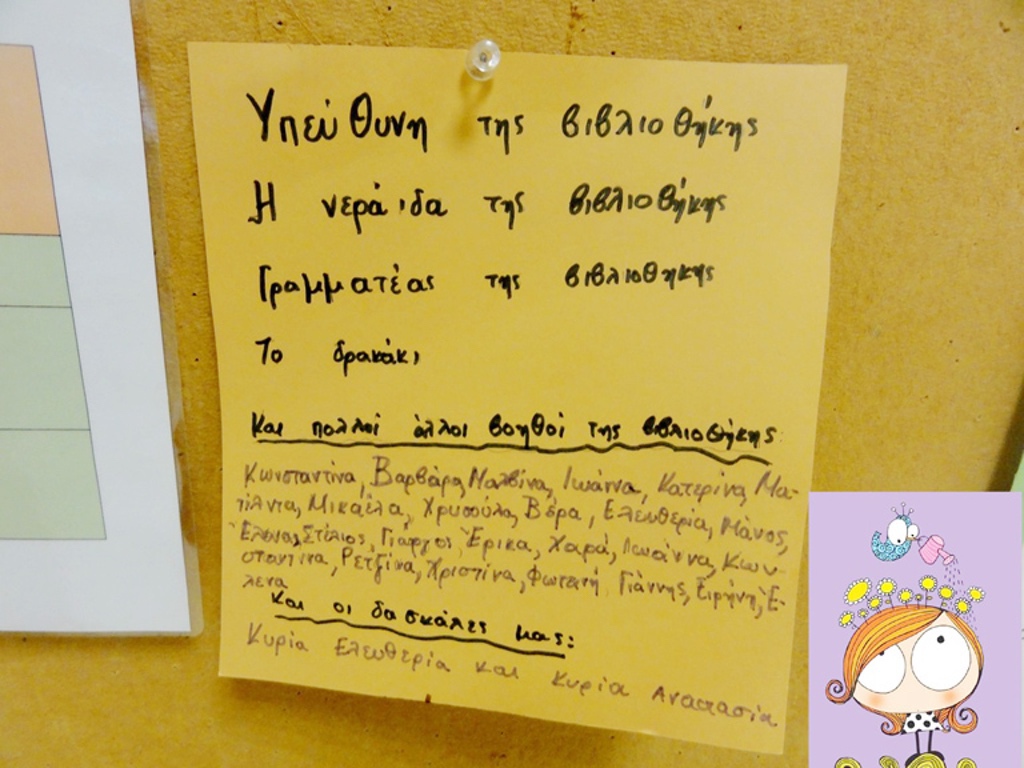 Υπεύθυνη της βιβλιοθήκης
Η νεράιδα της βιβλιοθήκης
Γραμματέας της βιβλιοθηκης
Το δρακάκι
Και πολλοί άλλοι βοηθοί της βιβλιοθήκης
Κωνσταντίνα, Βαρβάρα, Μαλβίνα, Ιωάννα, Κατερίνα, Μα-
τίλντα, Μικαέλα, Χρυσούλα, Βέρα, Ελευθερία, Μάνος,
Έλενα, Στέλιος, Γιώργος, Έρικα, Χαρά, Ιωάννα, Κων-
σταντίνα, Ρετζίνα, Χριστίνα, Φωτεινή, Γιάννης, Ειρήνη, Έ-
λενα
και οι δασκάλες μας:
Κυρία Ελευθερία και Κυρία Αναστασία